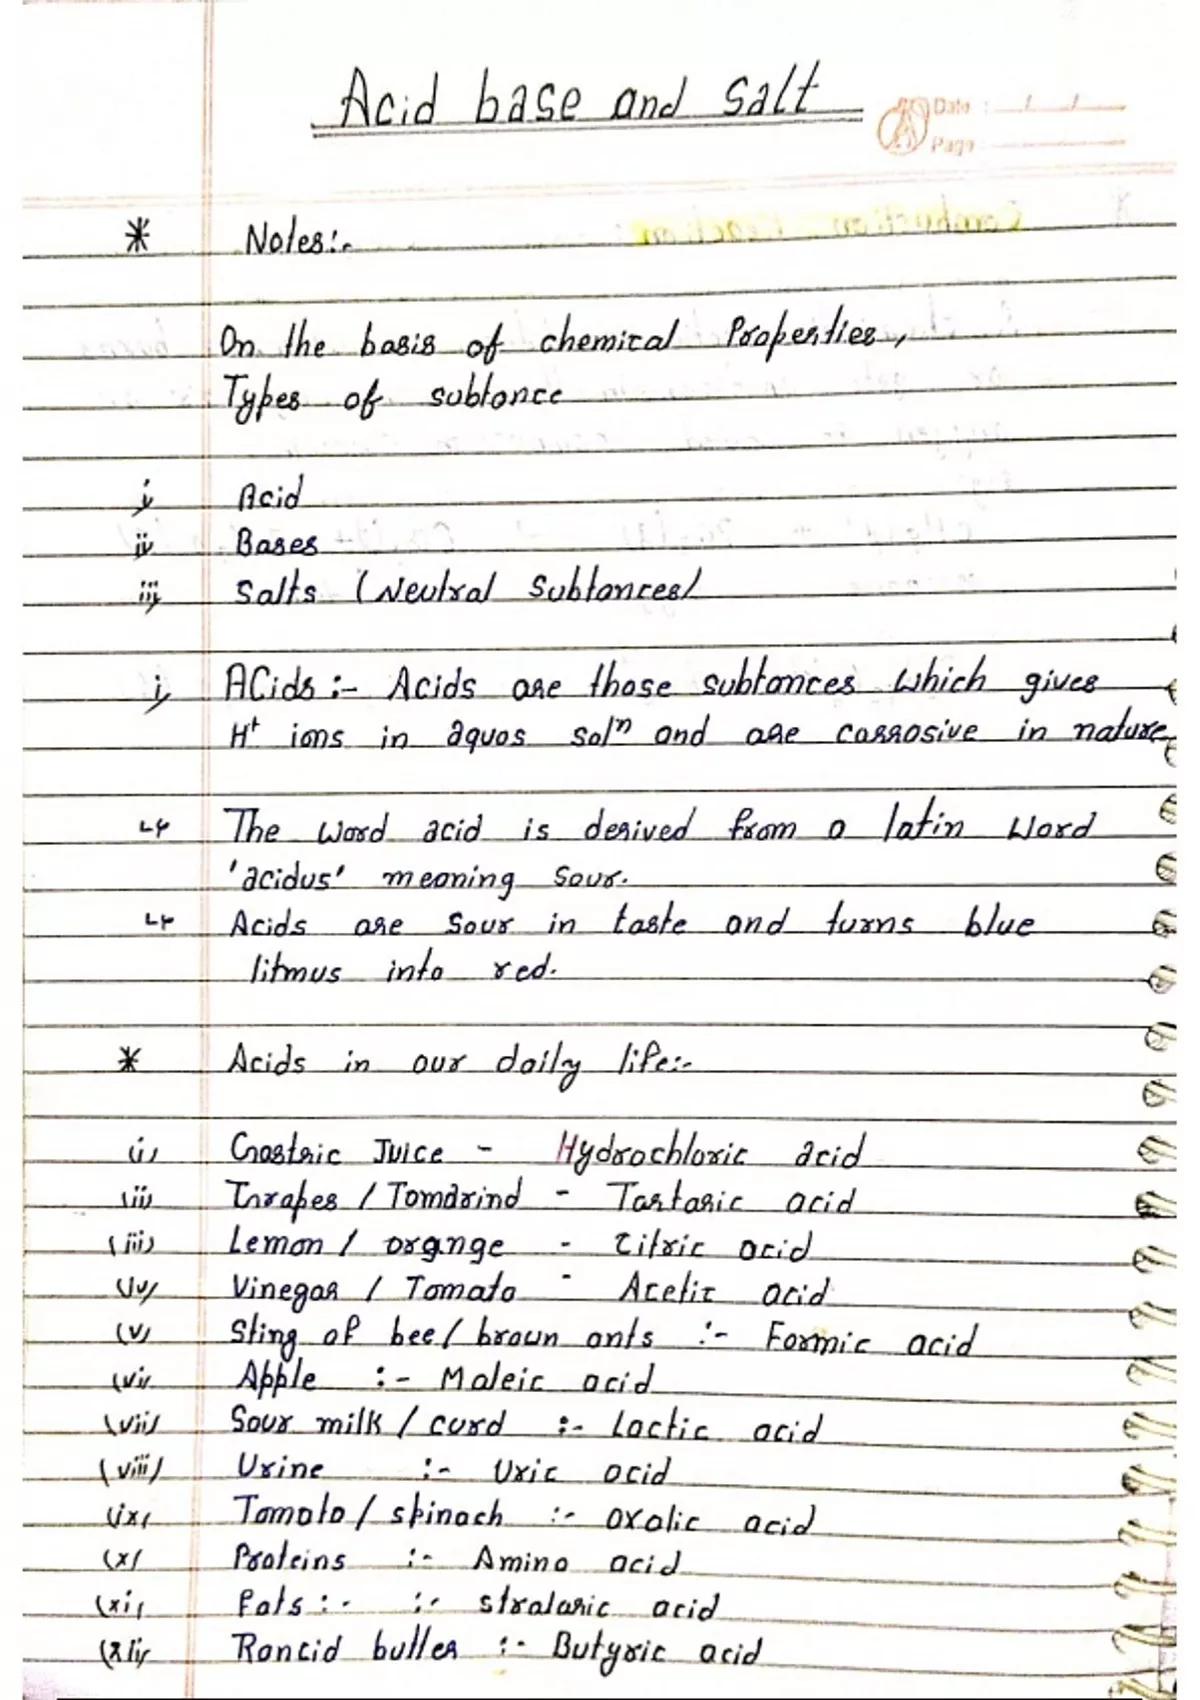 Acid base and salt
Date : / /
Page
* Notes:-
On the basis of chemical Properties,
Types of subtance
i, Acid
ii, Bases
iii, Salts (Neutral Subtances)
i, ACids :- Acids are those subtances which gives
H+ ions in aquos solⁿ and are corrosive in nature
↳ The word acid is derived from a latin word
'acidus' meaning sour.
↳ Acids are sour in taste and turns blue
litmus into red.
* Acids in our daily life:-
(i) Gastric Juice - Hydrochloric acid
(ii) Grapes / Tomarind - Tartaric acid
(iii) Lemon / orange - Citric acid
(iv) Vinegar / Tomato - Acetic acid
(v) Sting of bee / brown ants :- Formic acid
(vi) Apple :- Maleic acid
(vii) Sour milk / curd :- Lactic acid
(viii) Urine :- Uric acid
(ix) Tomato / spinach :- oxalic acid
(x) Proteins :- Amino acid
(xi) Fats :- :- stralaric acid
(xii) Rancid butter :- Butyric acid